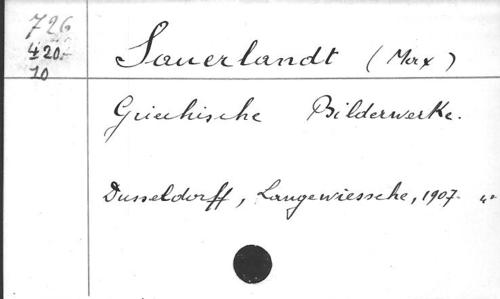 726
420.-
10
Sauerlandt (Max)
Griechische Bilderwerke.
Dusseldorff, Langewiessche, 1907. 4°